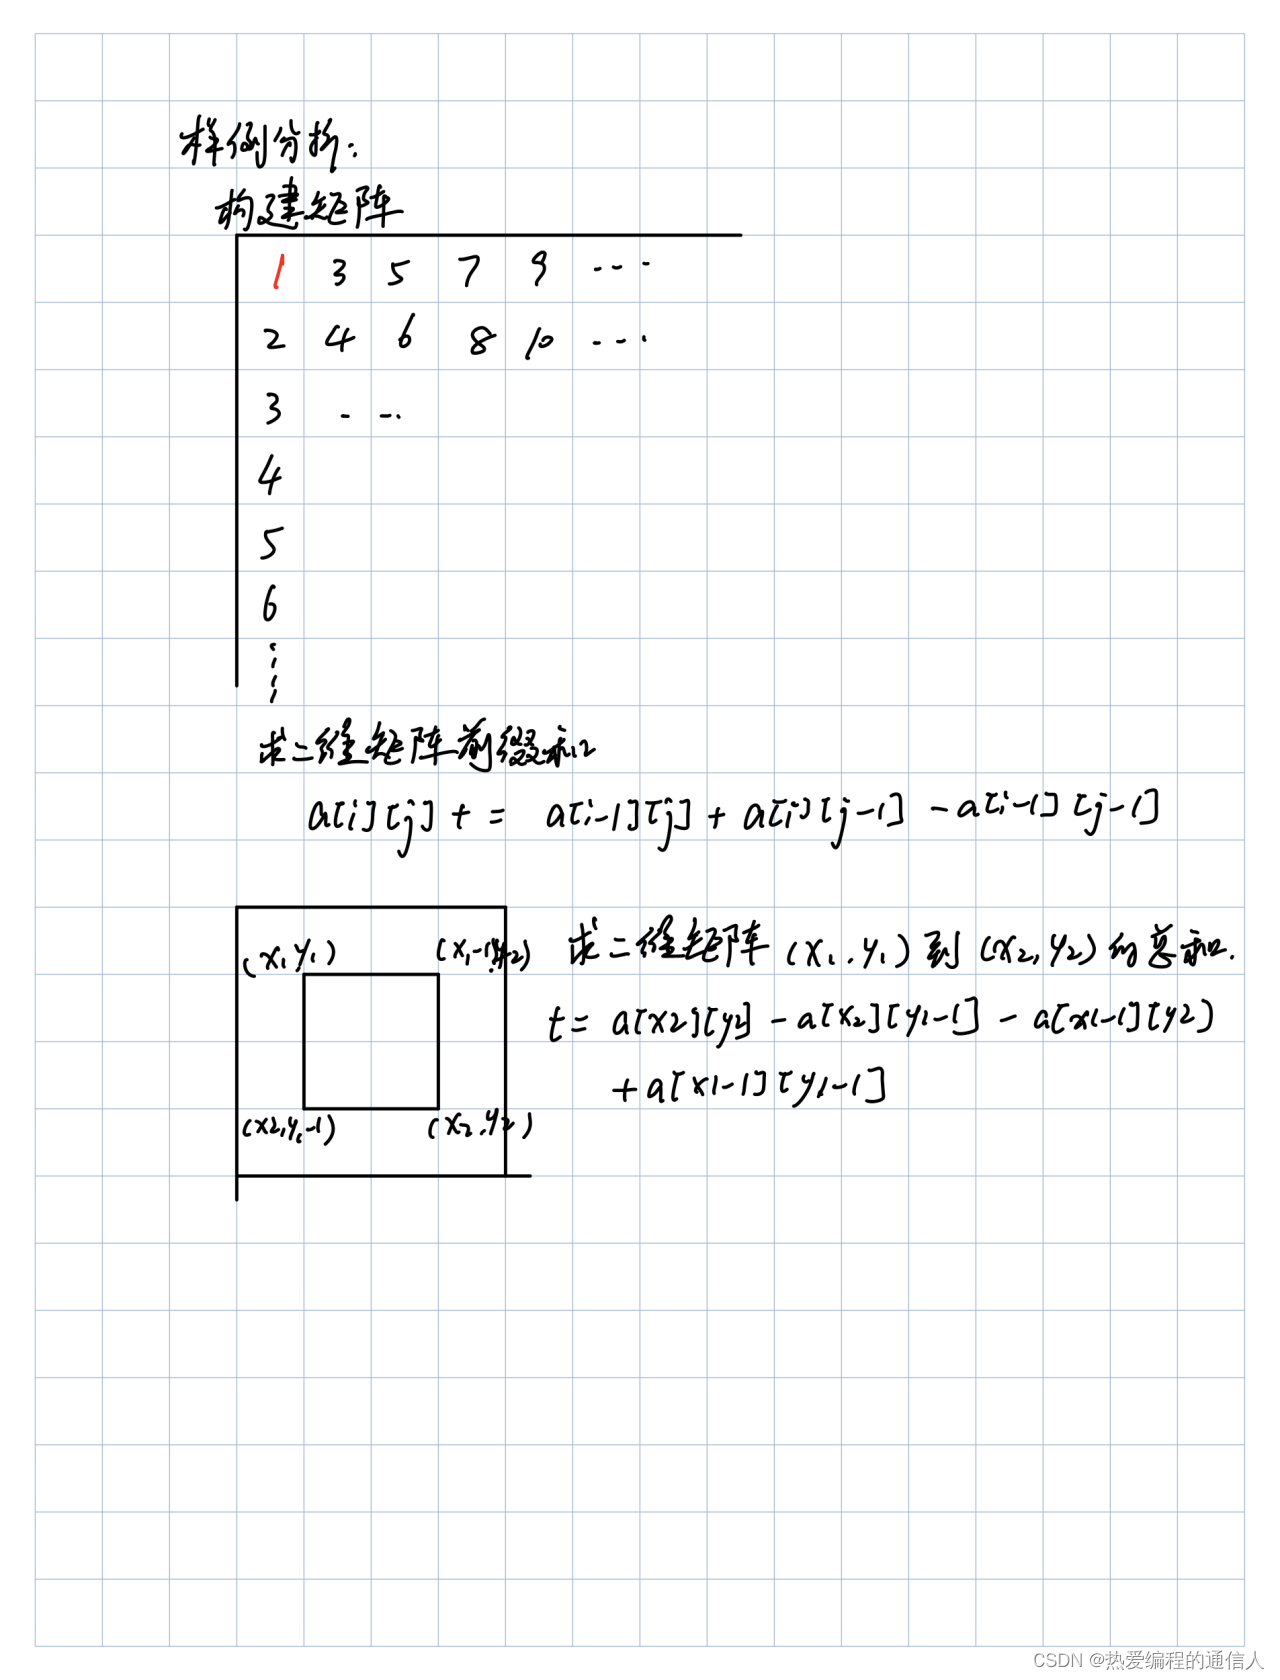 样例分析:
构建矩阵
1 3 5 7 9 ...
2 4 6 8 10 ...
3 ...
4
5
6
⋮
求二维矩阵前缀和
a[i][j] += a[i-1][j] + a[i][j-1] - a[i-1][j-1]
(x₁ y₁) (x₁-1, y2)
求二维矩阵 (x₁, y₁) 到 (x2, y2) 的总和.
t = a[x2][y2] - a[x2][y1-1] - a[x1-1][y2]
+ a[x1-1][y1-1]
(x2, y₁-1) (x2, y2)
CSDN @热爱编程的通信人